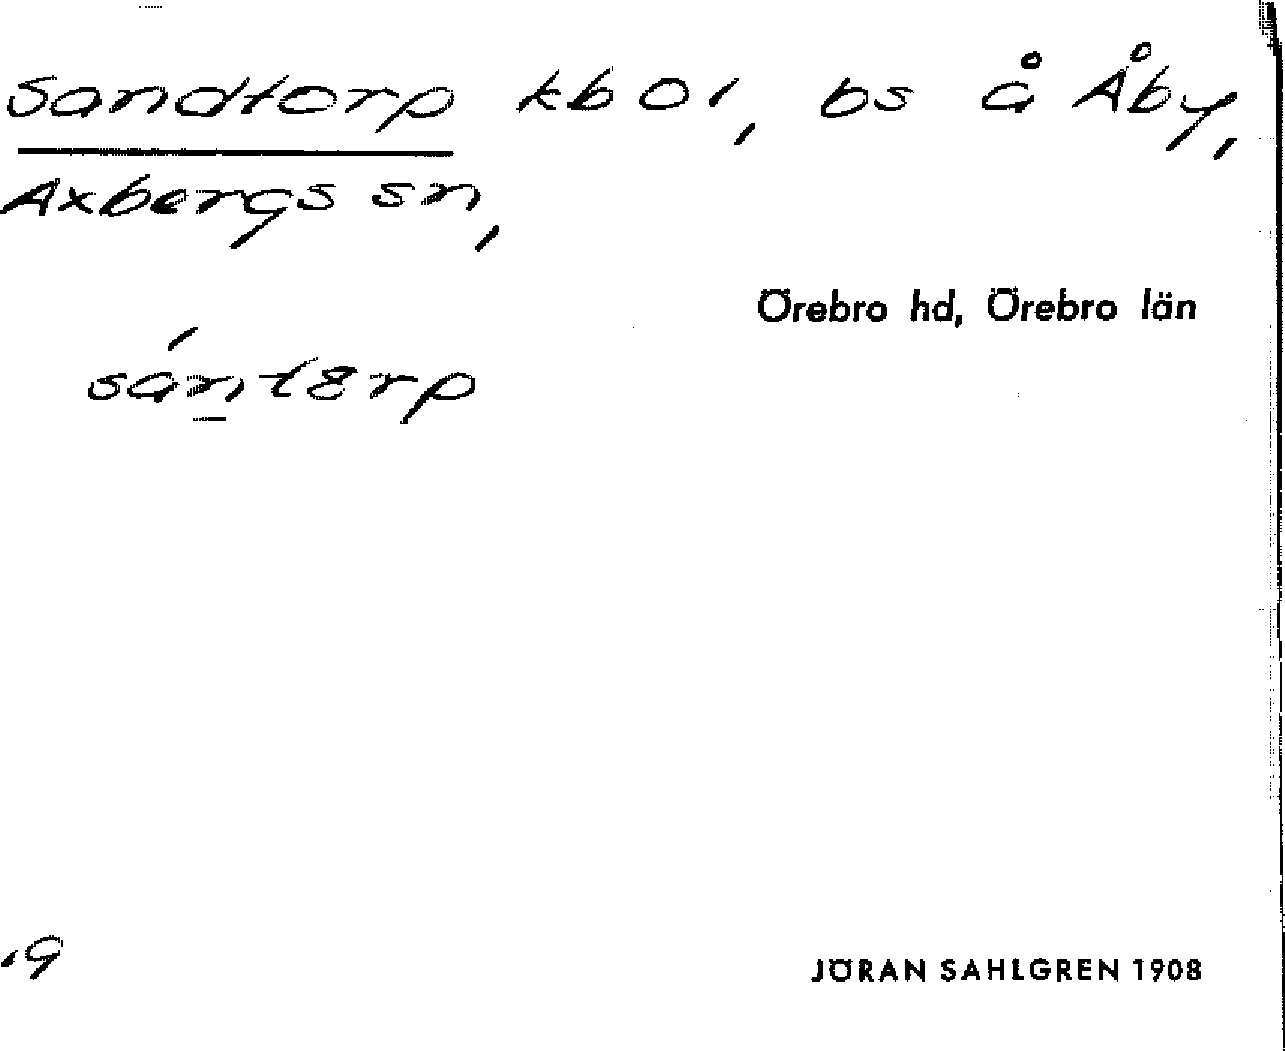 Sandtorp kbol, bs å Åby,
Axbergs sn,
Örebro hd, Örebro län
sánt8rp
JÖRAN SAHLGREN 1908